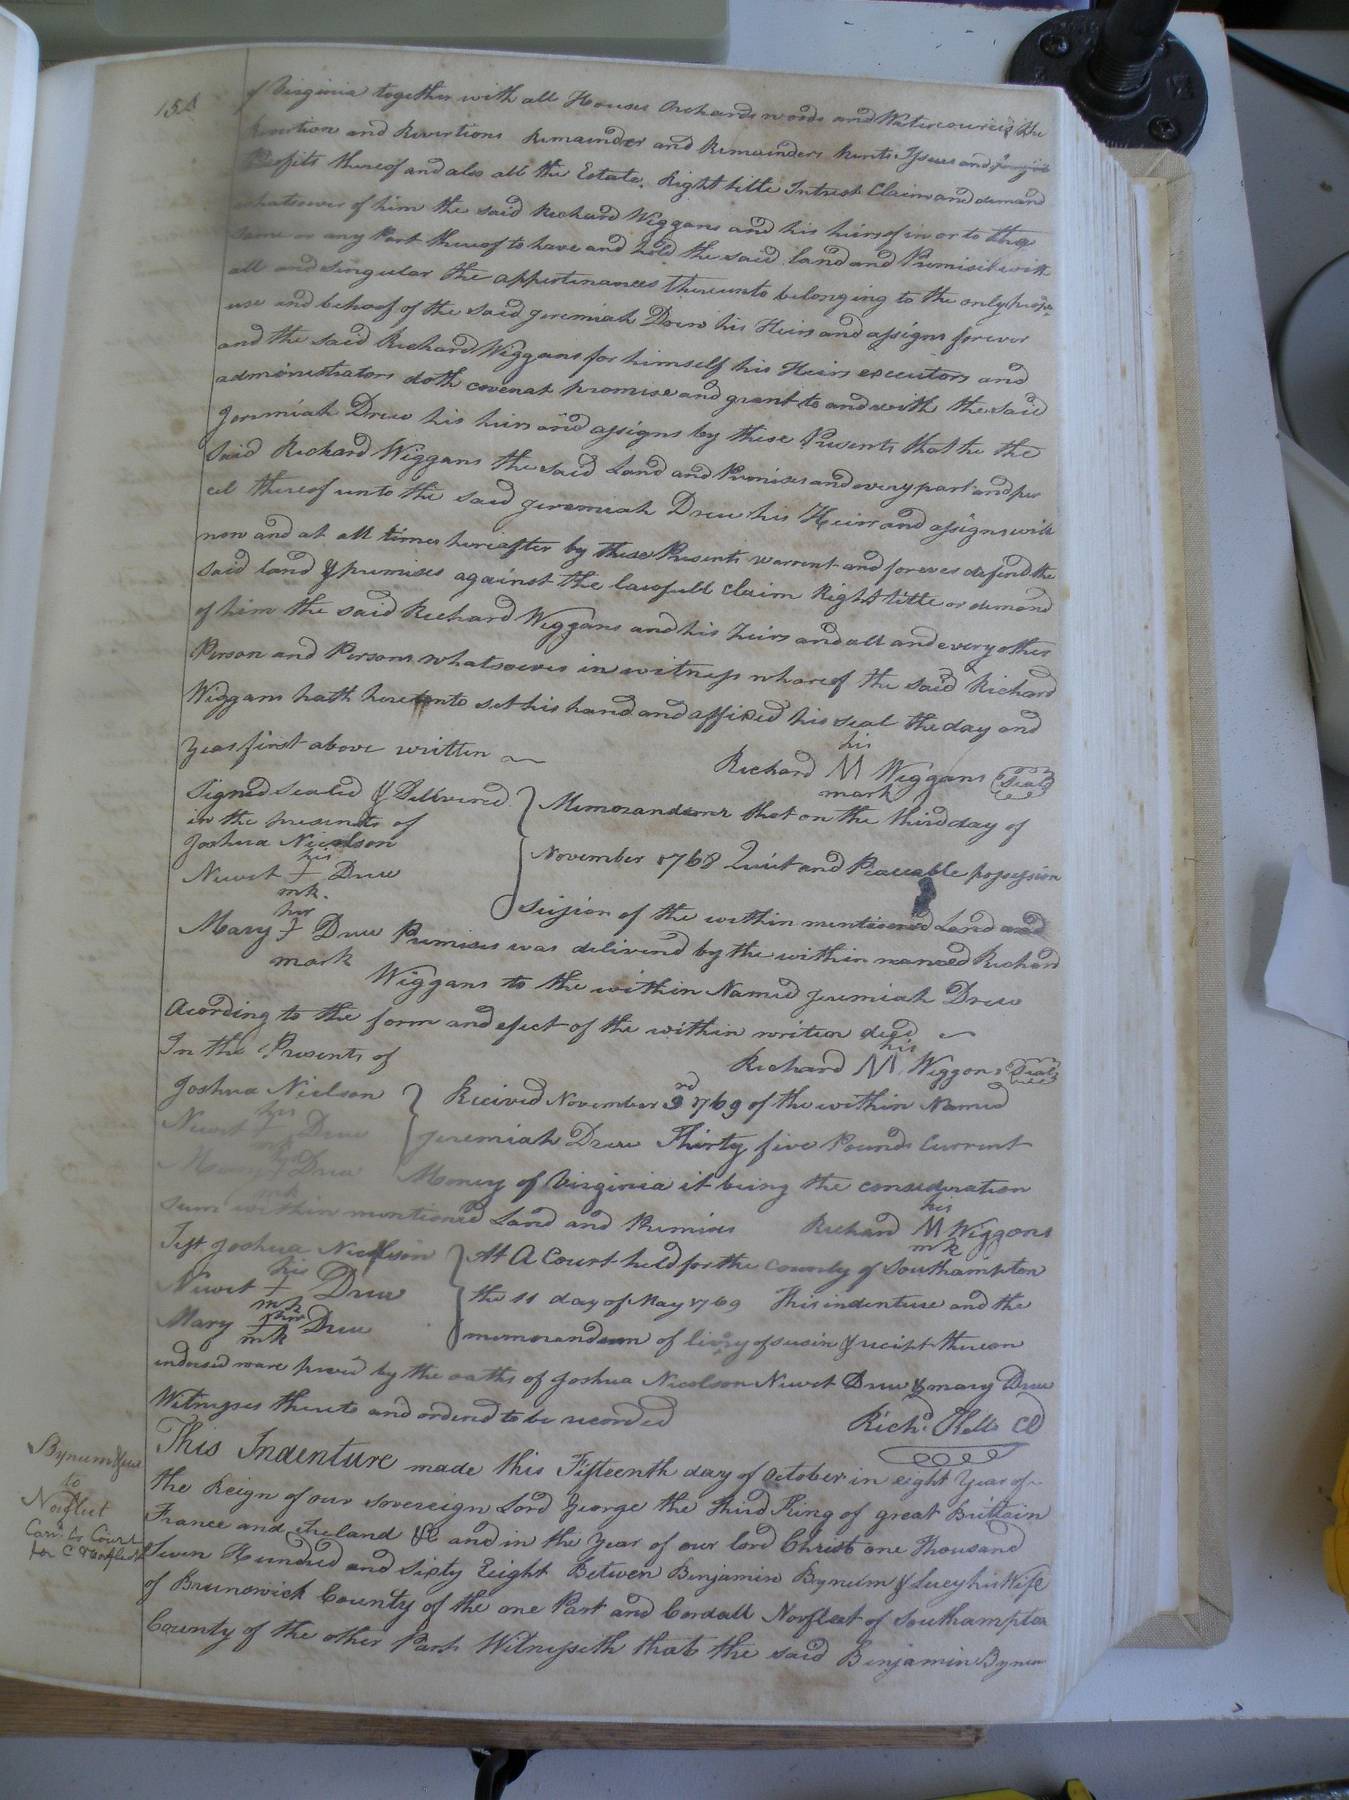 154
of Virginia together with all Houses Orchards woods and Watercourses the
Revertion and Revertions Remainder and Remainders Rents Issues and
Proffits thereof and also all the Estate Right title Intrest Claim and demand
whatsoever of him the said Richard Wiggans and his heirs of in or to the
same or any Part thereof to have and hold the said land and Premises with
all and Singular the appertinances thereunto belonging to the only proper
use and behoof of the said Jeremiah Drew his Heirs and assigns forever
and the said Richard Wiggans for himself his Heirs executors and
administrators doth covenat promise and grant to and with the said
Jeremiah Drew his heirs and assigns by these Presents that he the
said Richard Wiggans the said Land and Premises and every part and par
cel thereof unto the said Jeremiah Drew his Heirs and assigns will
now and at all times hereafter by these Presents warrent and forever defend the
said land & premises against the lawfull Claim Right title or demand
of him the said Richard Wiggans and his heirs and all and every other
Person and Persons whatsoever in witness whareof the said Richard
Wiggans hath hereunto set his hand and affixed his seal the day and
year first above written
his
Richard M Wiggans Seal
mark
Signed Sealed & Delivered
in the presents of
Joshua Nicolson
his
Newet + Drew
mk.
her
Mary + Drew
mark
Memorandum that on the third day of
November 1768 Quiet and Peaceable possession
Seizion of the within mentioned Land and
Premises was deliverd by the within named Richard
Wiggans to the within Named Jeremiah Drew
Acording to the form and efect of the within writen deed
In the Presents of
his
Richard M Wiggons Seal
Joshua Nicolson
his
Newet + Drew
mk
Mary + Drew
mk
Received November 3rd 1769 of the within Named
Jeremiah Drew Thirty five Pounds Current
Money of Virginia it being the consideration
sum within mentioned Land and Premises
his
Richard M Wiggons
mk
Test Joshua Nicolson
his
Newet + Drew
mk
her
Mary + Drew
mk
At A Court held for the County of Southampton
the 11 day of May 1769 This indenture and the
memorandum of livery of seasin & recipt thereon
endorsed ware proved by the oaths of Joshua Nicolson Newet Drew & Mary Drew
Witnesses thereto and orderd to be recorded
Richd. Kello CD
Bynum & Ux
to
Norfleet
This Indenture made this Fifteenth day of October in eight Year of
the Reign of our Sovereign Lord George the Third King of great Brittain
France and Ireland &c and in the Year of our lord Christ one Thousand
Seven Hundred and Sixty Eight Betwen Benjamin Bynum & Lucy his Wife
of Brunswick County of the one Part and Cordall Norfleet of Southampton
County of the other Part Witnesseth that the said Benjamin Bynum